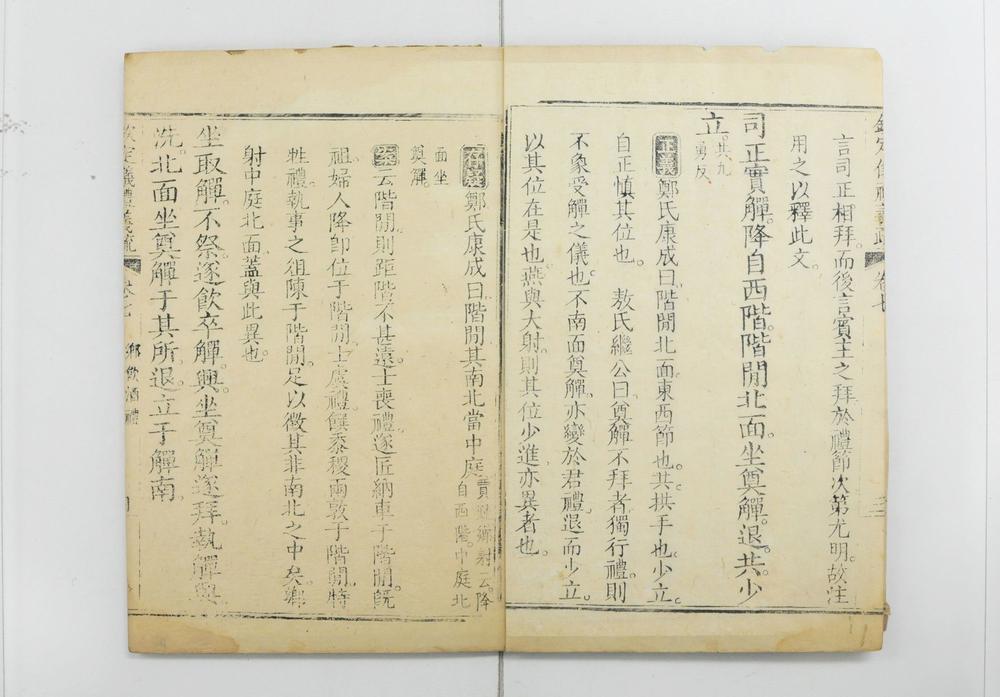 欽定儀禮義疏 卷七
言司正相拜而後言賓主之拜於禮節次第尤明故注
用之以釋此文
司正實觶降自西階階閒北面坐奠觶退共少
立共九勇反
正義鄭氏康成曰階閒北面東西節也共拱手也少立
自正慎其位也 敖氏繼公曰奠觶不拜者獨行禮則
不象受觶之儀也不南面奠觶亦變於君禮退而少立
以其位在是也燕與大射則其位少進亦異者也
存義鄭氏康成曰階閒其南北當中庭賈疏鄉射云降自西階中庭北
面坐奠觶
案云階閒則距階不甚遠士喪禮遂匠納車于階閒既
祖婦人降即位于階閒士虞禮饌黍稷兩敦于階閒特
牲禮執事之俎陳于階閒足以徵其非南北之中矣鄉
射中庭北面蓋與此異也
坐取觶不祭遂飲卒觶興坐奠觶遂拜執觶興
洗北面坐奠觶于其所退立于觶南
欽定儀禮義疏 卷七 鄉飲酒禮